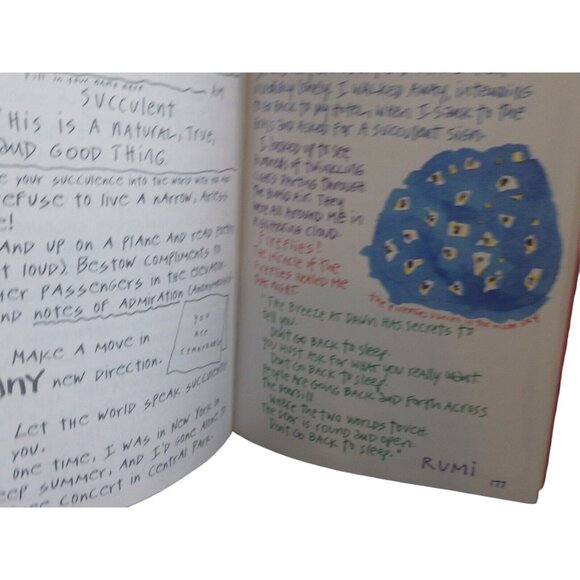 Fill in your name here
Am
Succulent
This is a natural, true,
and good thing.
your succulence into the world with
refuse to live a narrow,
and up on a plane and read
loud). Bestow compliments to
passengers in the
notes of admiration
You
are
Make a move in
any new direction.
Let the world speak
you.
One time, I was in New York in
summer, and I'd gone alone to
concert in Central Park.
lonely. I walked away, intending
to go back to my hotel, when I sank to the
and asked for a succulent sign.
I looked up to see
hundreds of twinkling
darting through
the humid air. They
all around me in
a glittering cloud.
Fireflies!
The miracle of the
fireflies healed me
that night.
the fireflies danced in the night sky
"The breeze at dawn has secrets to
tell you.
Don't go back to sleep.
You must ask for what you really want.
Don't go back to sleep.
People are going back and forth across
the doorsill
where the two worlds touch
The door is round and open.
Don't go back to sleep."
Rumi
177